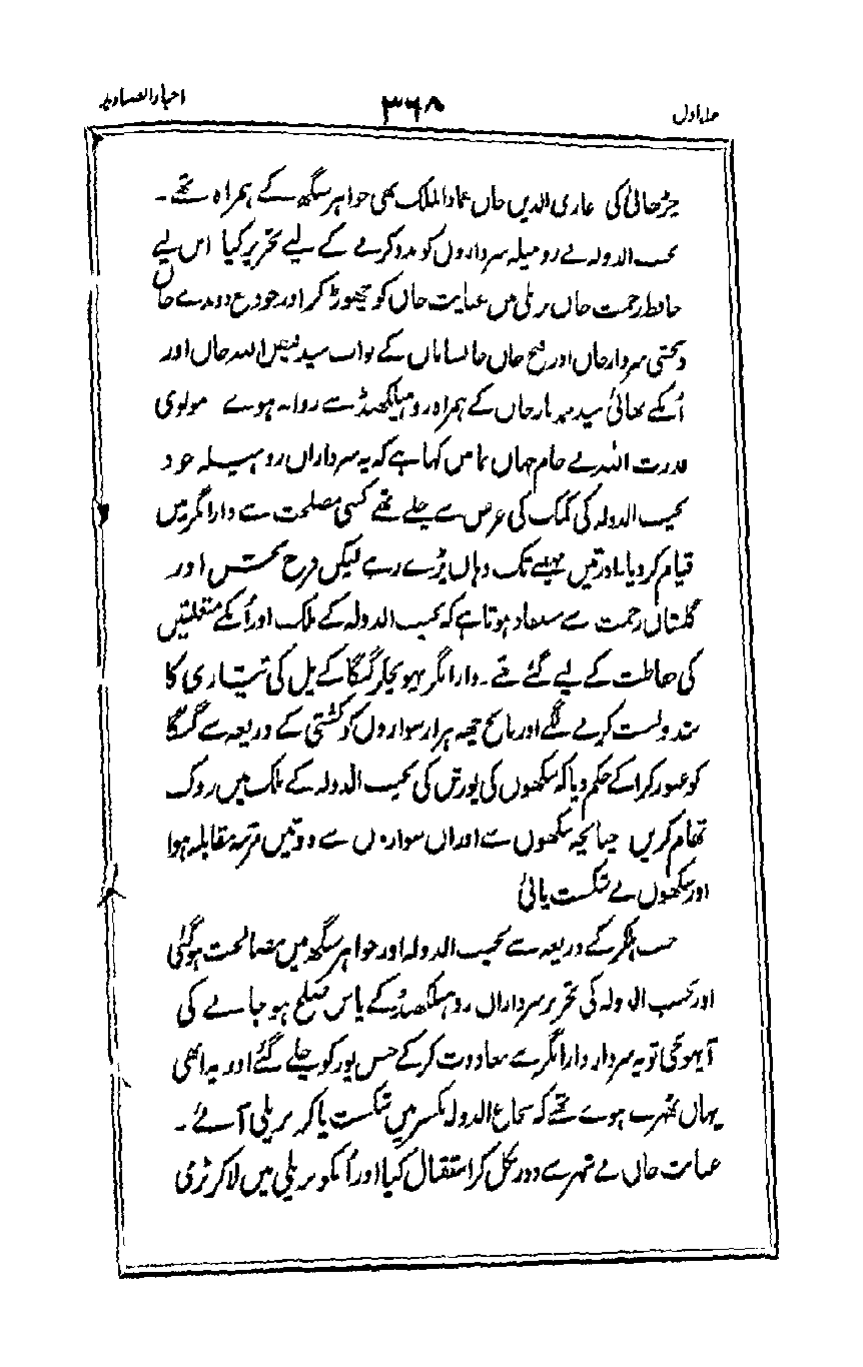 اخبار الصنادید ۳۶۸ جلد اول
چڑھائی کی غازی الدین خاں عماد الملک بھی جواہر سنگھ کے ہمراہ تھے۔
نجیب الدولہ نے روہیلہ سرداروں کو مدد کرنے کے لیے تحریر کیا اس لیے
حافظ رحمت خاں بریلی میں عنایت خاں کو چھوڑ کر اور خود مع دوندے خاں
و بخشی سردار خاں اور فتح خاں خانساماں کے نواب سید فیض اللہ خاں اور
اُنکے بھائی سید یار خاں کے ہمراہ روہیلکھنڈ سے روانہ ہوے مولوی
قدرت اللہ نے جام جہاں نما میں کہا ہے کہ یہ سرداران روہیلہ خود
نجیب الدولہ کی کمک کی غرض سے چلے تھے کسی مصلحت سے دارانگر میں
قیام کر دیا اور تین مہینے تک وہاں پڑے رہے لیکن فرح بخش اور
گلستان رحمت سے مستفاد ہوتا ہے کہ نجیب الدولہ کے ملک اور اُنکے متعلقین
کی حفاظت کے لیے گئے تھے۔ دارانگر پہونچکر گنگا کے پل کی تیاری کا
بندوبست کرنے لگے اور پانچ چھہ ہزار سواروں کو کشتی کے ذریعہ سے گنگا
کو عبور کرا کے حکم دیا کہ سکھوں کی یورش کی نجیب الدولہ کے ملک میں روک
تھام کریں چنانچہ سکھوں سے اور ان سواروں سے دو تین مرتبہ مقابلہ ہوا
اور سکھوں نے شکست پائی
جب ہلکر کے ذریعہ سے نجیب الدولہ اور جواہر سنگھ میں مصالحت ہوگئی
اور نجیب الدولہ کی تحریر سرداران روہیلکھنڈ کے پاس صلح ہو جانے کی
آپہونچی تو یہ سردار دارانگر سے معاودت کر کے حسن پور کو چلے گئے اور یہ ابھی
یہاں ٹھہرے ہوے تھے کہ شجاع الدولہ بکسر میں شکست پا کر بریلی آئے۔
عنایت خاں نے شہر سے دور نکل کر استقبال کیا اور اُنکو بریلی میں لا کر بڑی